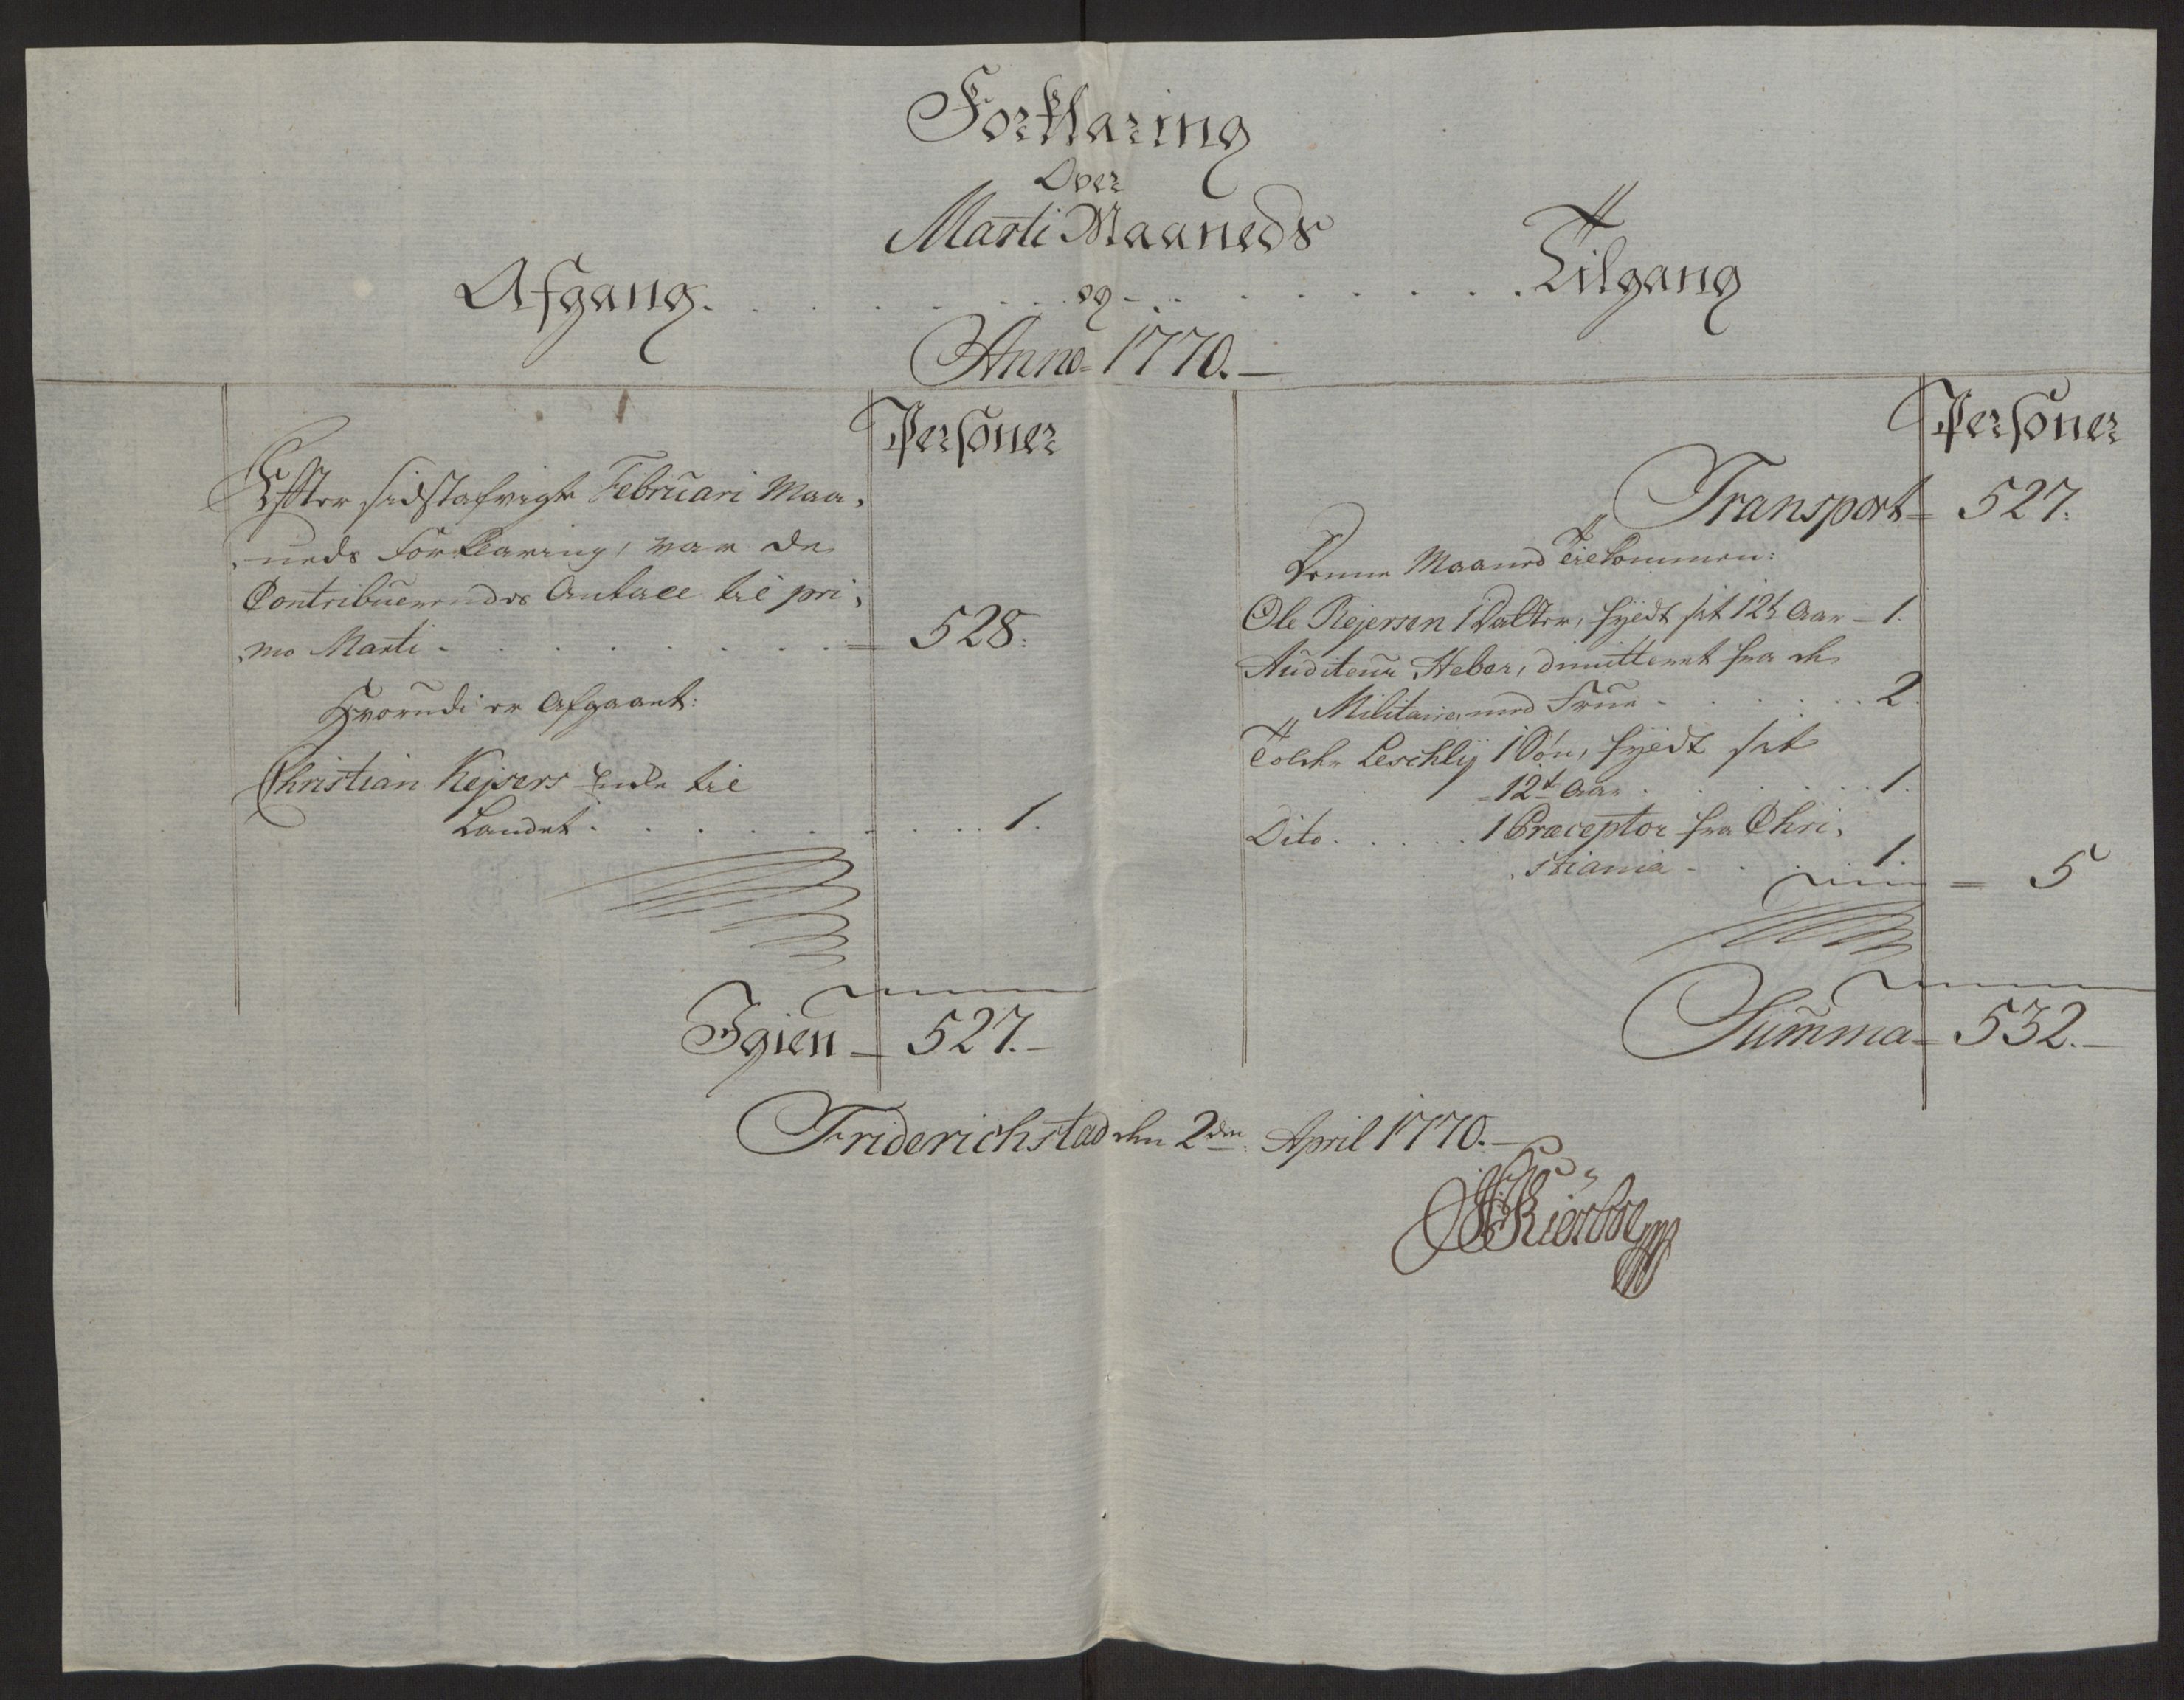 Forklaring
Over
Marti Maaneds
Afgang. . . . . . . og - . . . . . . . . Tilgang
Anno 1770.
Personer
Efter sidstafvigte Februari Maa,
neds Forklaring, var de
Contribuerendes Antall til pri,
mo Marti - . . . . . . . = 528.
Hvorudi er Afgaaet:
Christian Kejsers Enke til
Landet . . . . . . . . 1.
Igien = 527.
Personer
Transport = 527.
Denne Maaned Tilkommen:
Ole Rejersen 1 Datter, fyldt sit 12t Aar - 1.
Auditeur Heber, dimitteret fra de
Militaire, med Frue - . . . . . 2.
Tolder Leschly 1 Søn, fyldt sit
12t Aar . . . . . . 1.
Dito. . . . . . 1 Præceptor fra Chri,
stiania - . . . 1. = 5
Summa = 532.
Friderichstad den 2den April 1770.